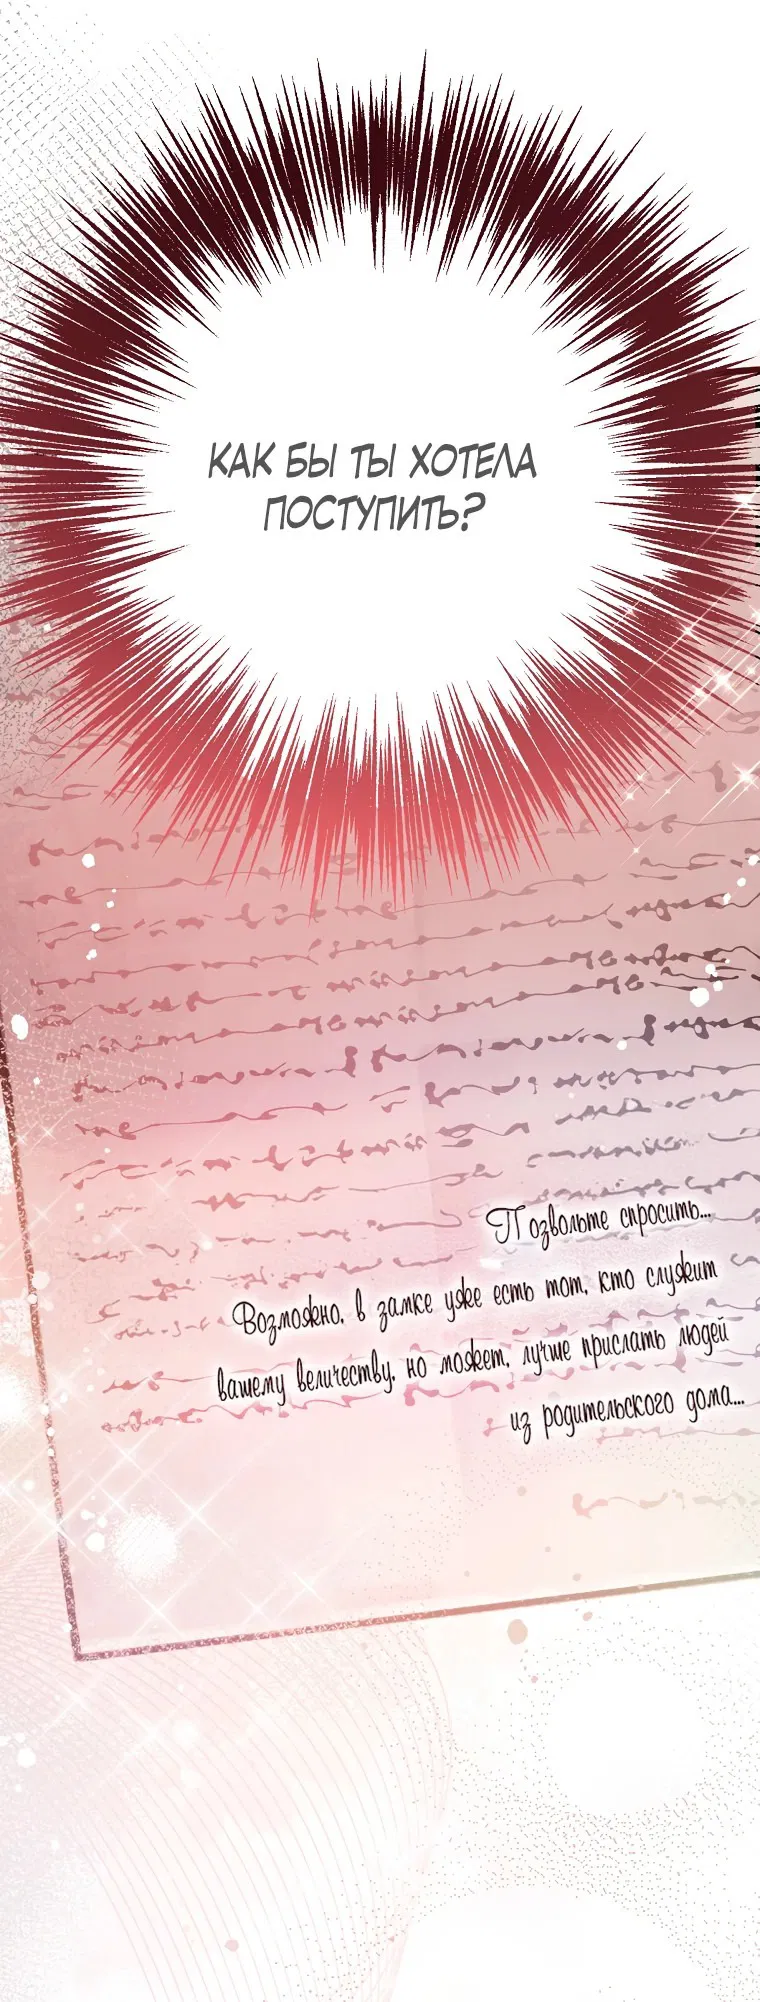 КАК БЫ ТЫ ХОТЕЛА
ПОСТУПИТЬ?
Позвольте спросить...
Возможно, в замке уже есть тот, кто служит
вашему величеству, но может, лучше прислать людей
из родительского дома...